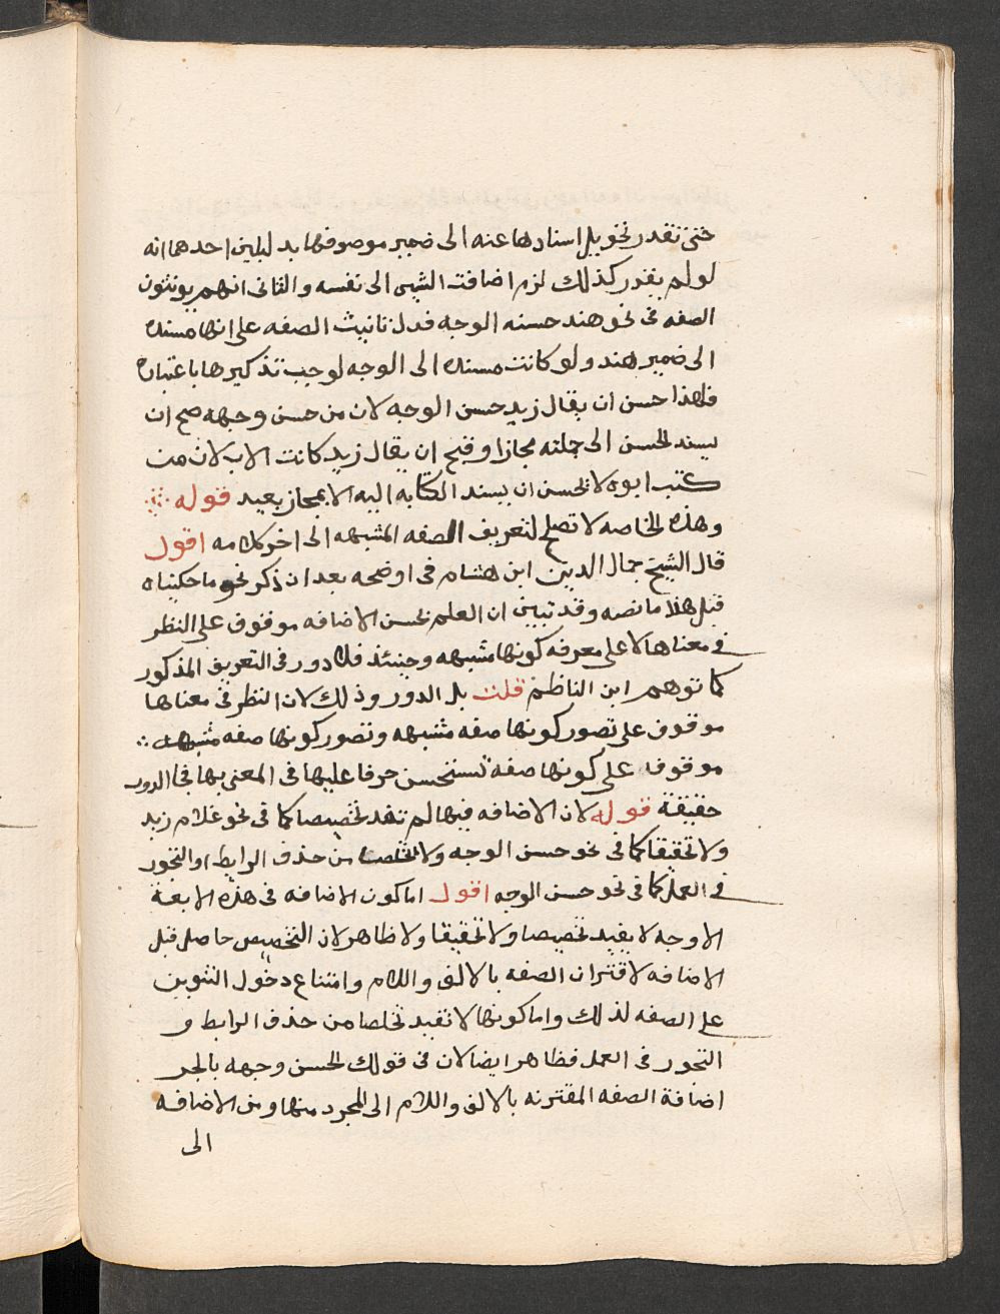 حتى تقدر تحويل اسنادها عنه الى ضمير موصوفها بدليلين احدهما انه
لو لم يقدر كذلك لزم اضافت الشيى الى نفسه والثانى انهم يونثون
الصفه فى نحو هند حسنه الوجه فدل تانيث الصفه على انها مسنده
الى ضمير هند ولو كانت مسنده الى الوجه لوجب تذكيرها باعتباره
فلهذا حسن ان يقال زيد حسن الوجه لان من حسن وجهه صح ان
يسند الحسن الى جملته مجازا وقبح ان يقال زيد كاتب الاب لان من
كتب ابوه لا يحسن ان يسند الكتابه اليه الا بمجاز بعيد قوله
وهذه الخاصه لا تصلح لتعريف الصفه المشبهه الى اخر كلامه اقول
قال الشيخ جمال الدين ابن هشام فى اوضحه بعد ان ذكر نحو ما حكيناه
قبل هذا ما نصه وقد تبين ان العلم بحسن الاضافه موقوف على النظر
فى معناها لا على معرفه كونها مشبهه وحينئذ فلا دور فى التعريف المذكور
كما توهم ابن الناظم قلت بل الدور وذلك لان النظر فى معناها
موقوف على تصور كونها صفه مشبهه وتصور كونها صفه مشبهه
موقوف على كونها صفه تستحسن جرفا عليها فى المعنى بها فجا الدور
حقيقة قوله لان الاضافه فيها لم تفد تخصيصا كما فى نحو غلام زيد
ولا تحقيقا كما فى نحو حسن الوجه ولا تخلصا من حذف الرابط او التجور
فى العمل كما فى نحو حسن الوجه اقول اما كون الاضافه فى هذه الابعة
الاوجه لا يفيد تخصيصا ولا تحقيقا ولا ظاهر لان التخصيص حاصل قبل
الاضافه لاقتران الصفه بالالف واللام وامتناع دخول التنوين
على الصفه لذلك واما كونها لا تفيد تخلصا من حذف الرابط و
التجور فى العمل فظاهر ايضا لان فى قولك الحسن وجهه بالجر
اضافة الصفه المقترنه بالالف واللام الى المجرد منها ومن الاضافه
الى